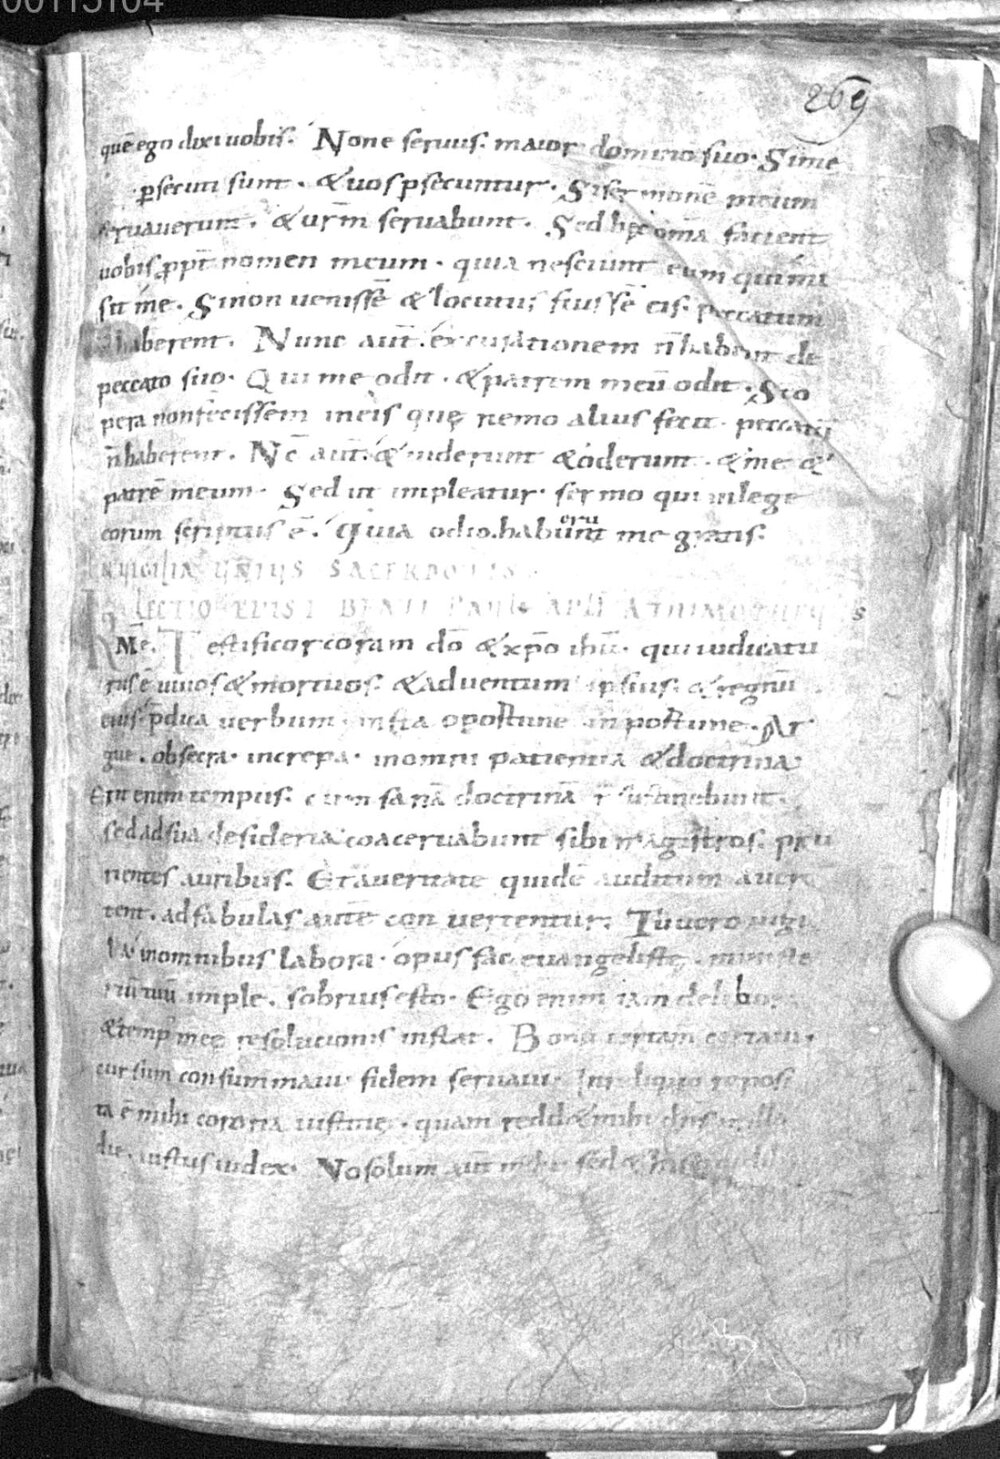 00115104
269
quē ego dixi uobis. Non e seruus. maior domino suo. Si me
p̱secuti sunt. & uos p̱sequntur. Si sermonē meum
seruauerunt. & ur̄m seruabunt. Sed hęc om̄a facient
uobis ꝓpt̄ nomen meum. quia nesciunt eum qui mi
sit me. Si non uenissē & locutus fuissē eis. peccatum
haberent. Nunc aut̄. excusationem n̄ habent de
peccato suo. Qui me odit. & patrem meū odit. Si o
pera non fecissem in eis quę nemo alius fecit. peccatū
n̄ haberent. Nc̄ aut̄. & uiderunt & oderunt. & me &
patrē meum. Sed ut impleatur. sermo qui in lege
eorum scriptus ē. Quia odio habuerunt me gratis.
UNIUS SACERDOTIS
LECTIO EPIST BEATI PAULI APLI AD TIMOTHEU
s
Testificor coram dō & xp̄o ihū. qui iudicatu
rus ē uiuos & mortuos. & aduentum ipsius. & regnū
eius. p̄dica uerbum. insta oportune inportune. Ar
gue. obsecra. increpa. in omni patientia & doctrina.
Erit enim tempus. cum sanā doctrinā n̄ sustinebunt.
sed ad sua desideria coaceruabunt sibi magistros. pru
rientes auribus. Et a ueritate quidē auditum auer
tent. ad fabulas autē conuertentur. Tu uero uigi
la. in omnibus labora. opus fac euangelistę. ministe
riū tuū imple. sobrius esto. Ego enim iam delibor
& temp meę resolucionis instat. Bonū certam certaui.
cursum consummaui. fidem seruaui. In reliquo reposi
ta ē mihi corona iustitię. quam redd& mihi dn̄s in illa
die. iustus iudex. No solum aut̄ mihi sed &